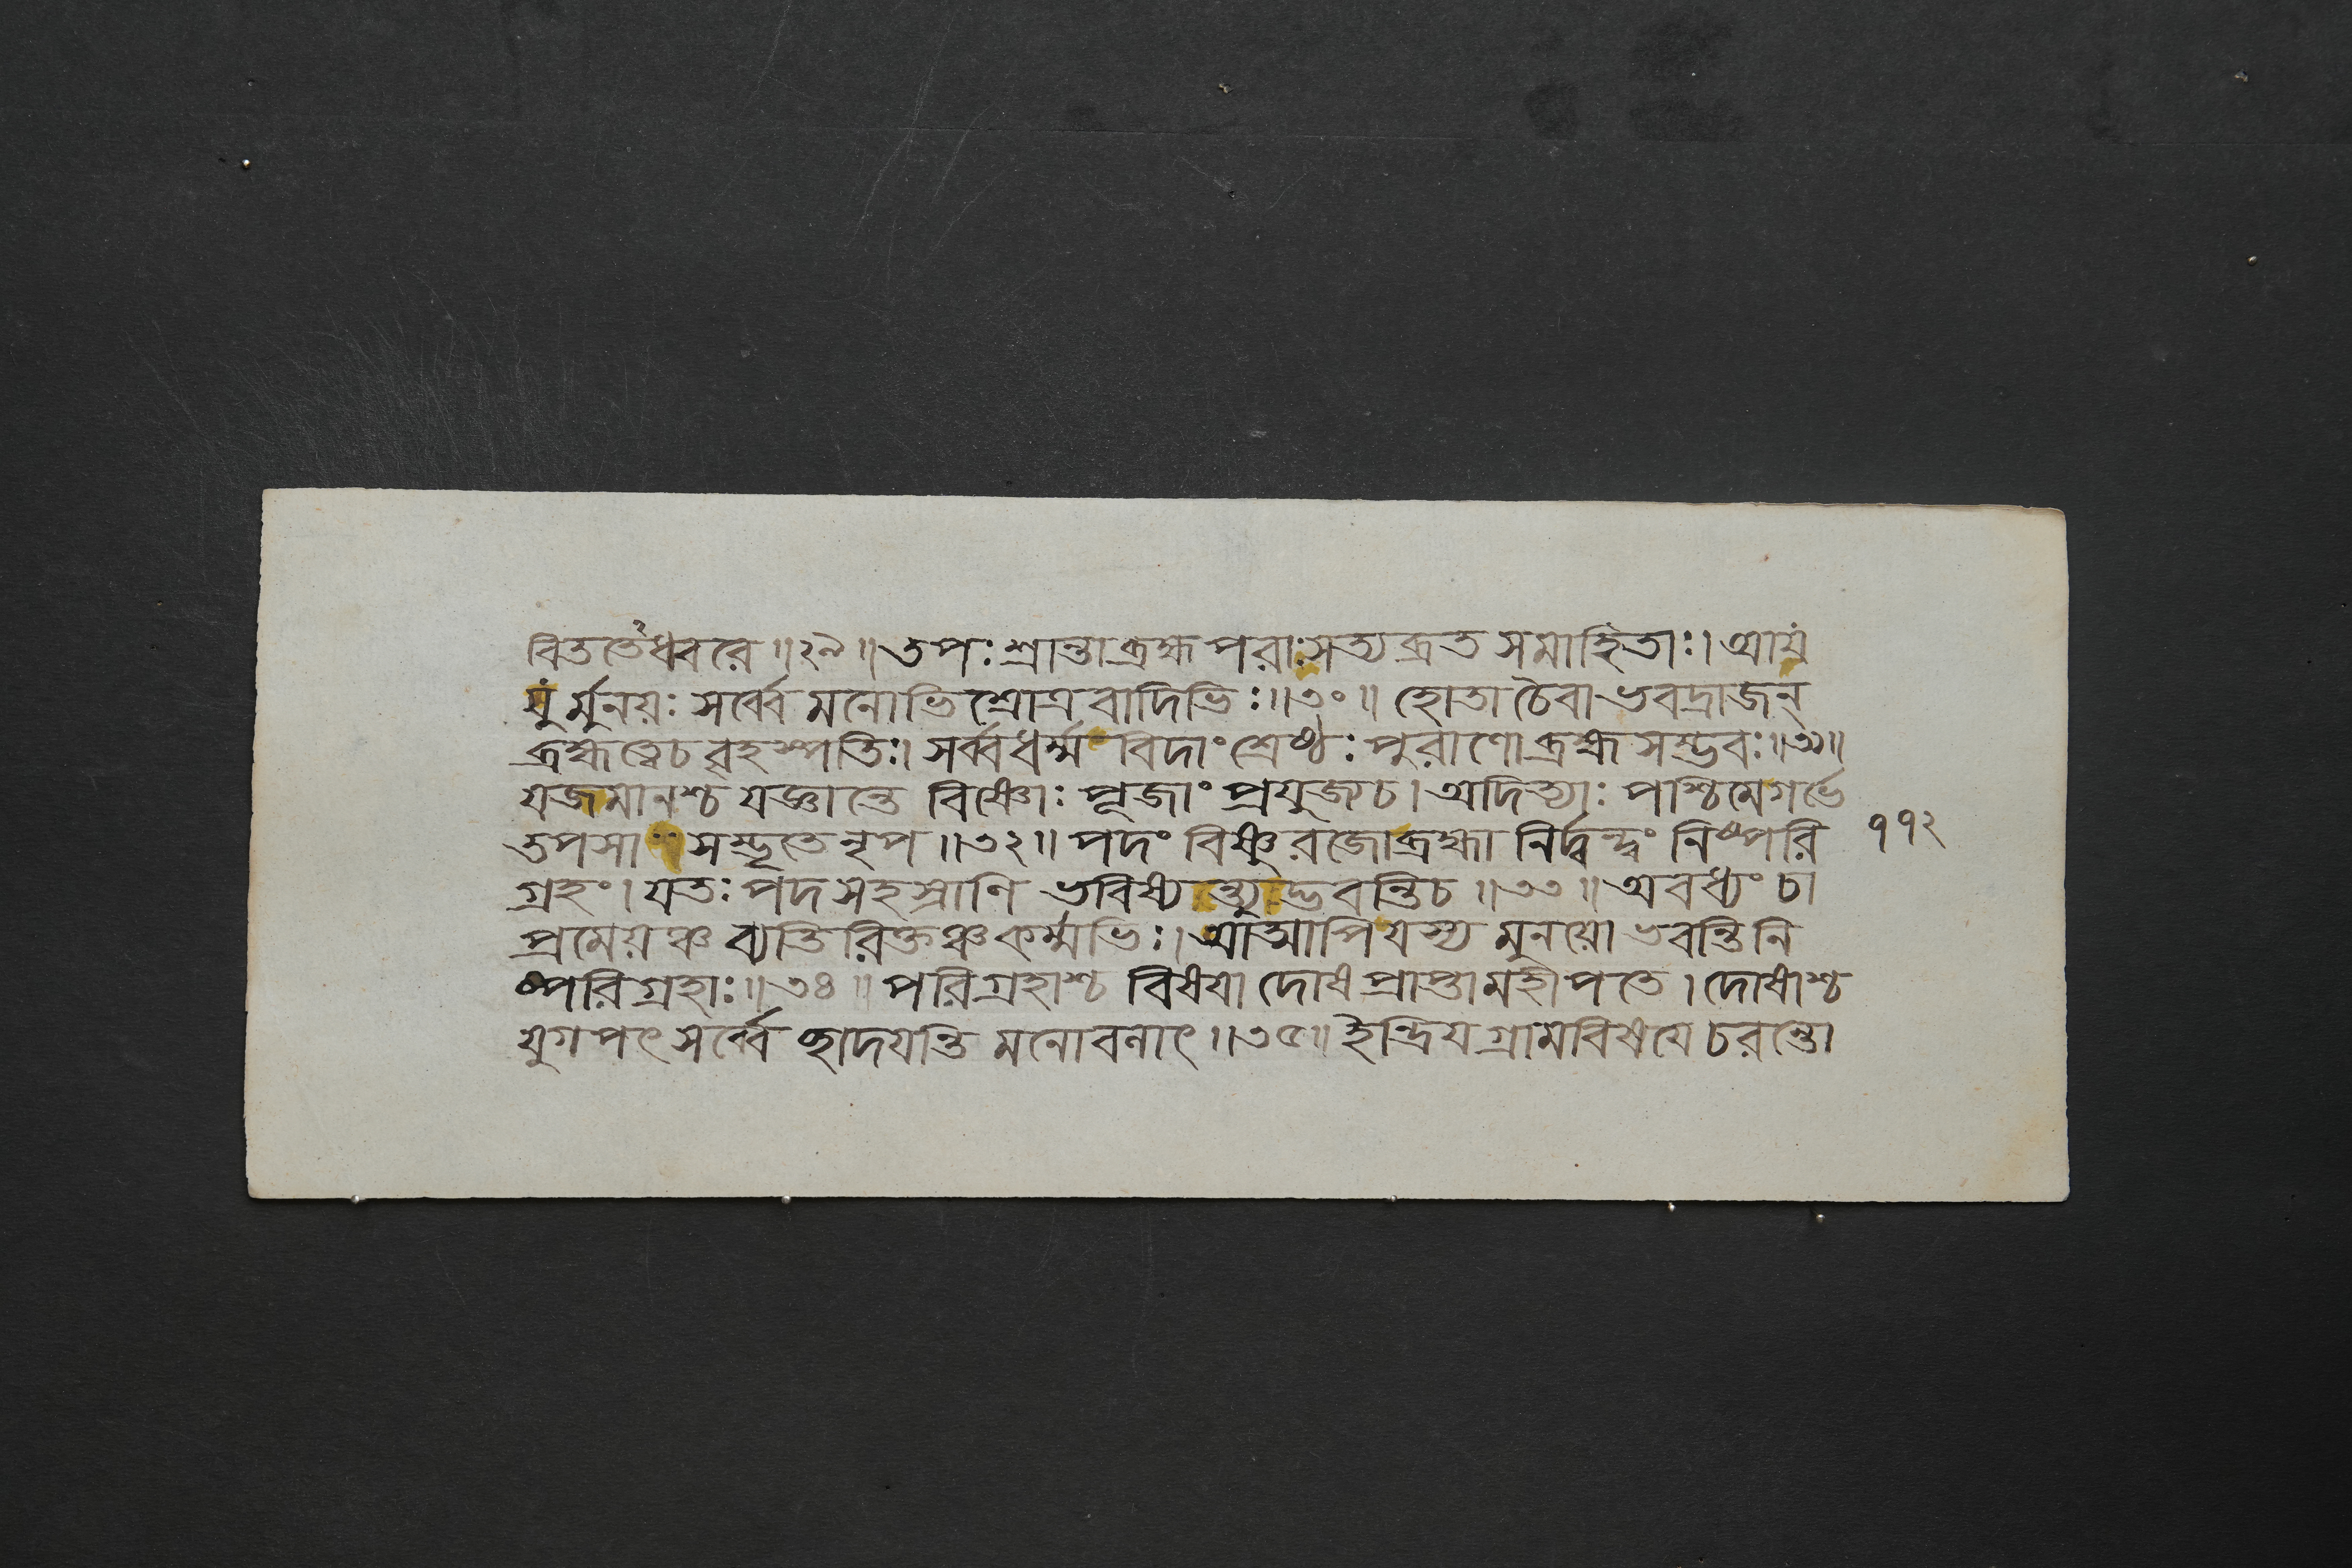 বিততেঽধ্বরে ॥২৯॥ তপঃশ্রান্তা ব্রহ্মপরাঃ সত্যব্রত সমাহিতাঃ। আয়
যুর্মুনয়ঃ সর্ব্বে মনোভিশ্রোত্রবাদিভিঃ॥৩০॥ হোতা চৈবাভবদ্রাজন্
ব্রহ্মত্বেচ বৃহস্পতিঃ। সর্ব্বধর্ম্ম বিদাং শ্রেষ্ঠঃ পুরাণো ব্রহ্মসম্ভবঃ॥৩১॥
যজমানশ্চ যজ্ঞান্তে বিষ্ণোঃ পূজাং প্রযুজ্যচ। অদিত্যাঃ পশ্চিমেগর্ভে
তপসা সম্ভৃতে নৃপ ॥৩২॥ পদং বিষ্ণুরজোব্রহ্মা নির্দ্বন্দ্বং নিষ্পরি
গ্রহং। যতঃ পদসহস্রাণি ভবিষ্যন্ত্যুদ্ভবন্তিচ ॥৩৩॥ অবধ্যং চা
প্রমেয়ঞ্চ ব্যতিরিক্তঞ্চ কর্ম্মভিঃ। আআপি যস্য মুনয়ো ভবন্তি নি
ষ্পরিগ্রহাঃ॥৩৪॥ পরিগ্রহাশ্চ বিষয়া দোষ প্রাপ্তা মহীপতে। দোষাশ্চ
যুগপৎ সর্ব্বে চ্ছাদয়ন্তি মনোবনাৎ॥৩৫॥ ইন্দ্রিয়গ্রামবিষয়ে চরন্তো
১১২